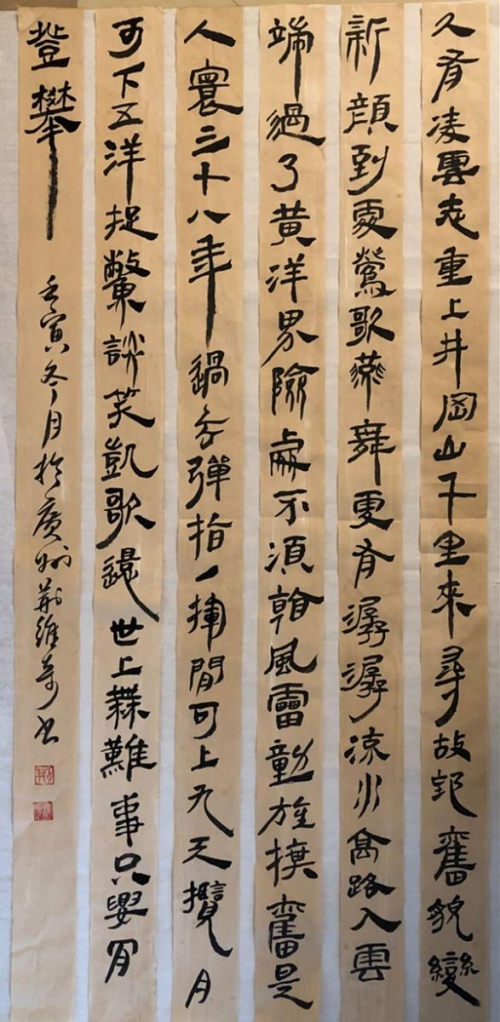 久有凌雲志重上井岡山千里來尋故地舊貌變
新顔到處鶯歌燕舞更有潺潺流水高路入雲
端過了黄洋界險處不須看風雷動旌旗奮是
人寰三十八年過去彈指一揮間可上九天攬月
可下五洋捉鱉談笑凱歌還世上無難事只要肯
登攀
壬寅冬月於廣州荆維奇書